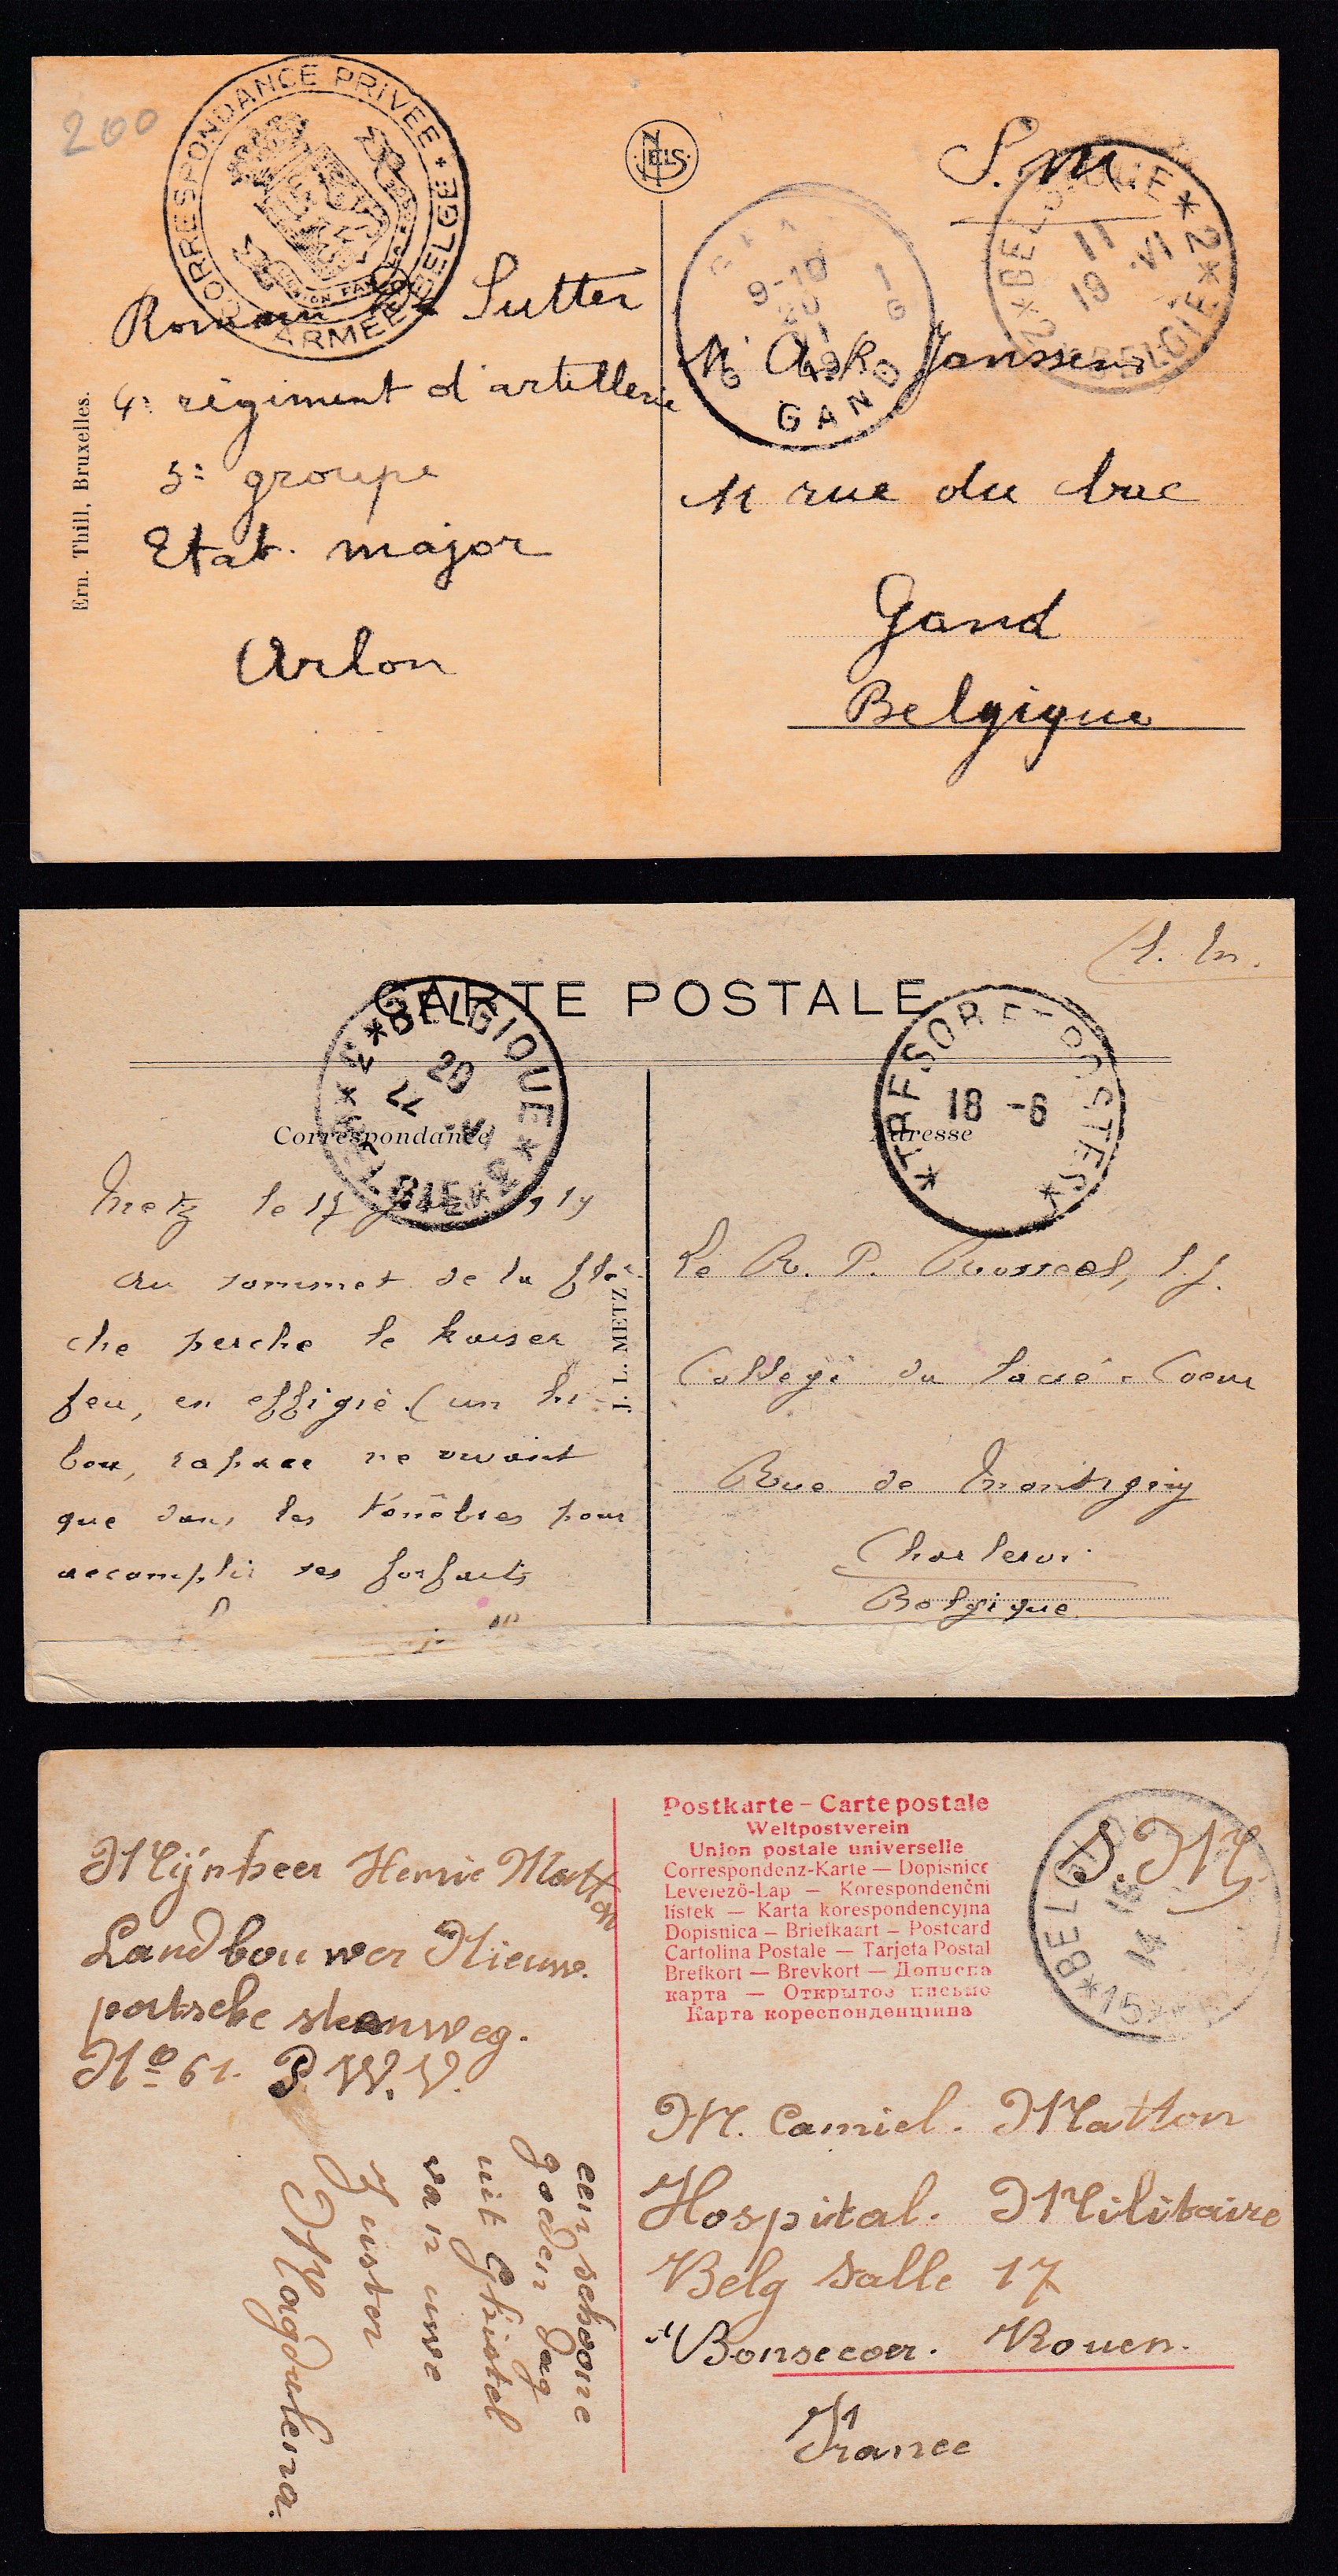 200
CORRESPONDANCE PRIVEE * ARMEE BELGE
NELS
S. M.
BELGIQUE * 2 * BELGIE * 2 *
11
19 VI
9-10
20
GAND
Romain De Sutter
4e régiment d'artillerie
3e groupe
Etat major
Arlon
Ern. Thill, Bruxelles.
Janssens
11 rue du bac
Gand
Belgique
S. M.
CARTE POSTALE
*BELGIQUE*
20
22 VI
*TRESOR ET POSTES*
18 -6
Correspondance
Adresse
Metz le 17 19
Au sommet de la flè-
che perche le kaiser
feu, en effigie (un hi-
bou, rapace ne vivant
que dans les ténèbres pour
accomplir ses forfaits
J. L. METZ
Le R. P. Roussel, S.J.
Collège du Sacré-Coeur
Rue de Montigny
Charleroi
Belgique
Mijnheer Henrie Matton
Landbouwer Nieuw.
portsche steenweg.
No 61. P. W. V.
een schoone
goeden dag
uit Ghistel
van uwe
Zuster
Magdalena.
Postkarte – Carte postale
Weltpostverein
Union postale universelle
Correspondenz-Karte — Dopisnice
Levelező-Lap — Korespondenční
lístek — Karta korespondencyjna
Dopisnica — Briefkaart — Postcard
Cartolina Postale — Tarjeta Postal
Brefkort — Brevkort — Дописна
карта — Открытое письмо
Карта кореспонденцiина
S. M.
*BELGIQ
15
14
*15*
M. Camiel. Matton
Hospital. Militaire
Belg Salle 17
Bonsecoer. Rouen.
France